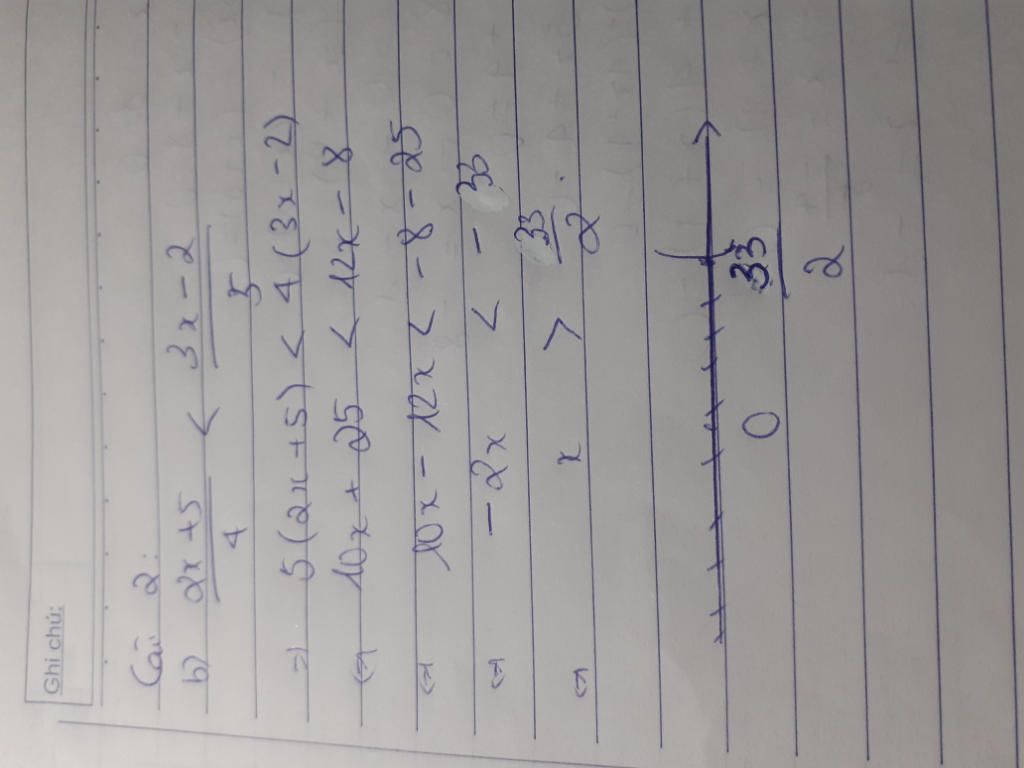 Ghi chú:
Câu 2:
b) \frac{2x+5}{4} < \frac{3x-2}{5}
=) 5(2x+5) < 4(3x-2)
(=) 10x + 25 < 12x - 8
(=) 10x - 12x < -8 - 25
(=) -2x < -33
(=) x > \frac{33}{2}.
0 \frac{33}{2}